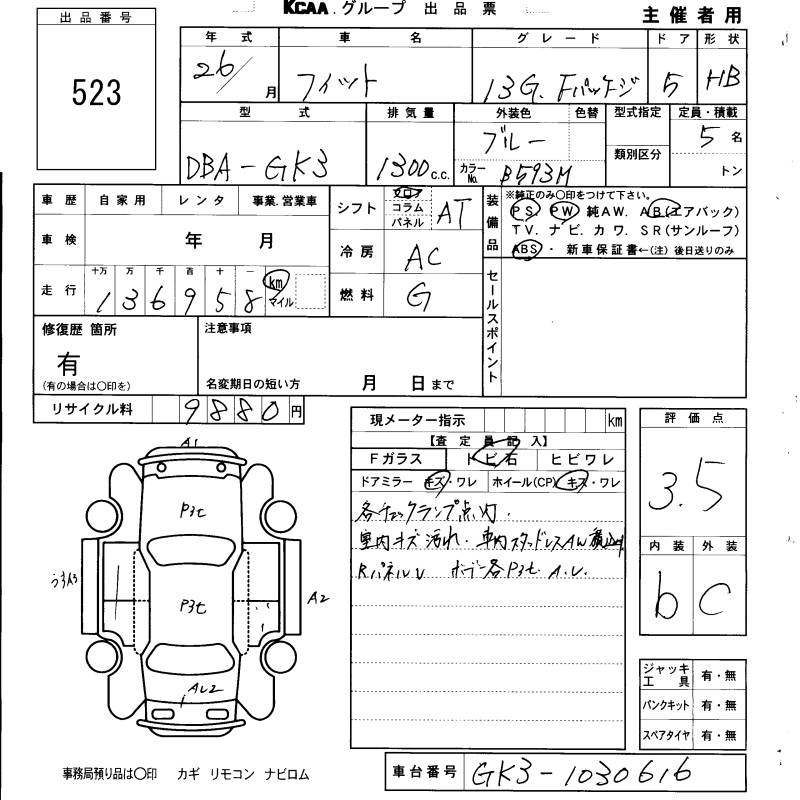 KCAA.グループ 出品票
主催者用
出品番号
523
年式 車名 グレード ドア 形状
26/ 月 フィット 13G.Fパッケージ 5 HB
型式 排気量 外装色 色替 型式指定 定員・積載
DBA-GK3 1300 c.c. ブルー 類別区分 5 名
カラーNo. B593M トン
車歴 自家用 レンタ 事業.営業車
シフト フロア コラム パネル AT
装備品
※純正のみ○印をつけて下さい。
PS. PW. 純AW. AB(エアバック)
TV. ナビ. カワ. SR(サンルーフ)
ABS ・ 新車保証書←(注) 後日送りのみ
車検 年 月
冷房 AC
走行 十万 万 千 百 十 一
136958 km マイル
燃料 G
セールスポイント
修復歴 箇所
有
(有の場合は○印を)
注意事項
名変期日の短い方 月 日まで
リサイクル料 9880 円
現メーター指示 km
【査定員記入】
Fガラス トビ石 ヒビワレ
ドアミラー キズ・ワレ ホイール(CP) キズ・ワレ
各チェックランプ点灯.
室内キズ汚れ. 車内スタッドレスAW積込み
Rパネルv ボデー各Pヨセ. A.U.
評価点
3.5
内装 外装
b C
A1
Pヨセ
Pヨセ
A2
AU2
ジャッキ工具 有・無
パンクキット 有・無
スペアタイヤ 有・無
事務局預り品は○印 カギ リモコン ナビロム
車台番号 GK3-1030616